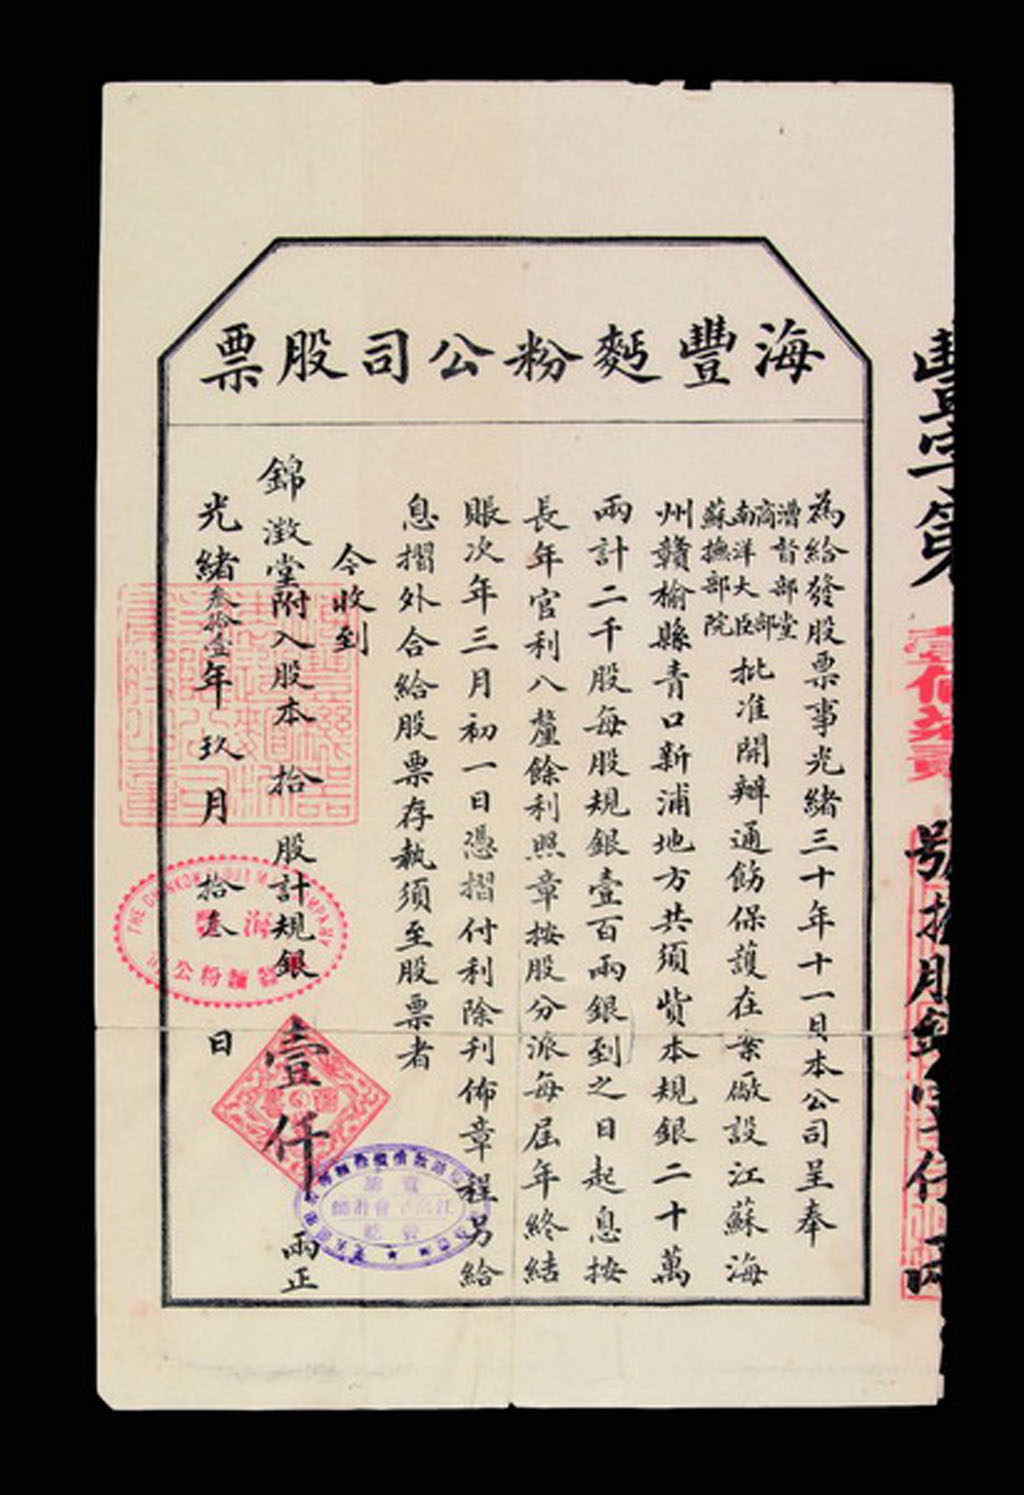 海豐麪粉公司股票
為給發股票事光緒三十年十一月本公司呈奉
漕督部堂
商部
南洋大臣
蘇撫部院
批准開辦通飭保護在案廠設江蘇海
州贛榆縣青口新浦地方共須貲本規銀二十萬
兩計二千股每股規銀壹百兩銀到之日起息按
長年官利八釐餘利照章按股分派每屆年終結
賬次年三月初一日憑摺付利除刋佈章程另給
息摺外合給股票存執須至股票者
今收到
錦澂堂附入股本拾股計規銀壹仟兩正
光緒叁拾壹年玖月拾叁日
豐字第
號拾股
仟兩
海豐
公粉麵